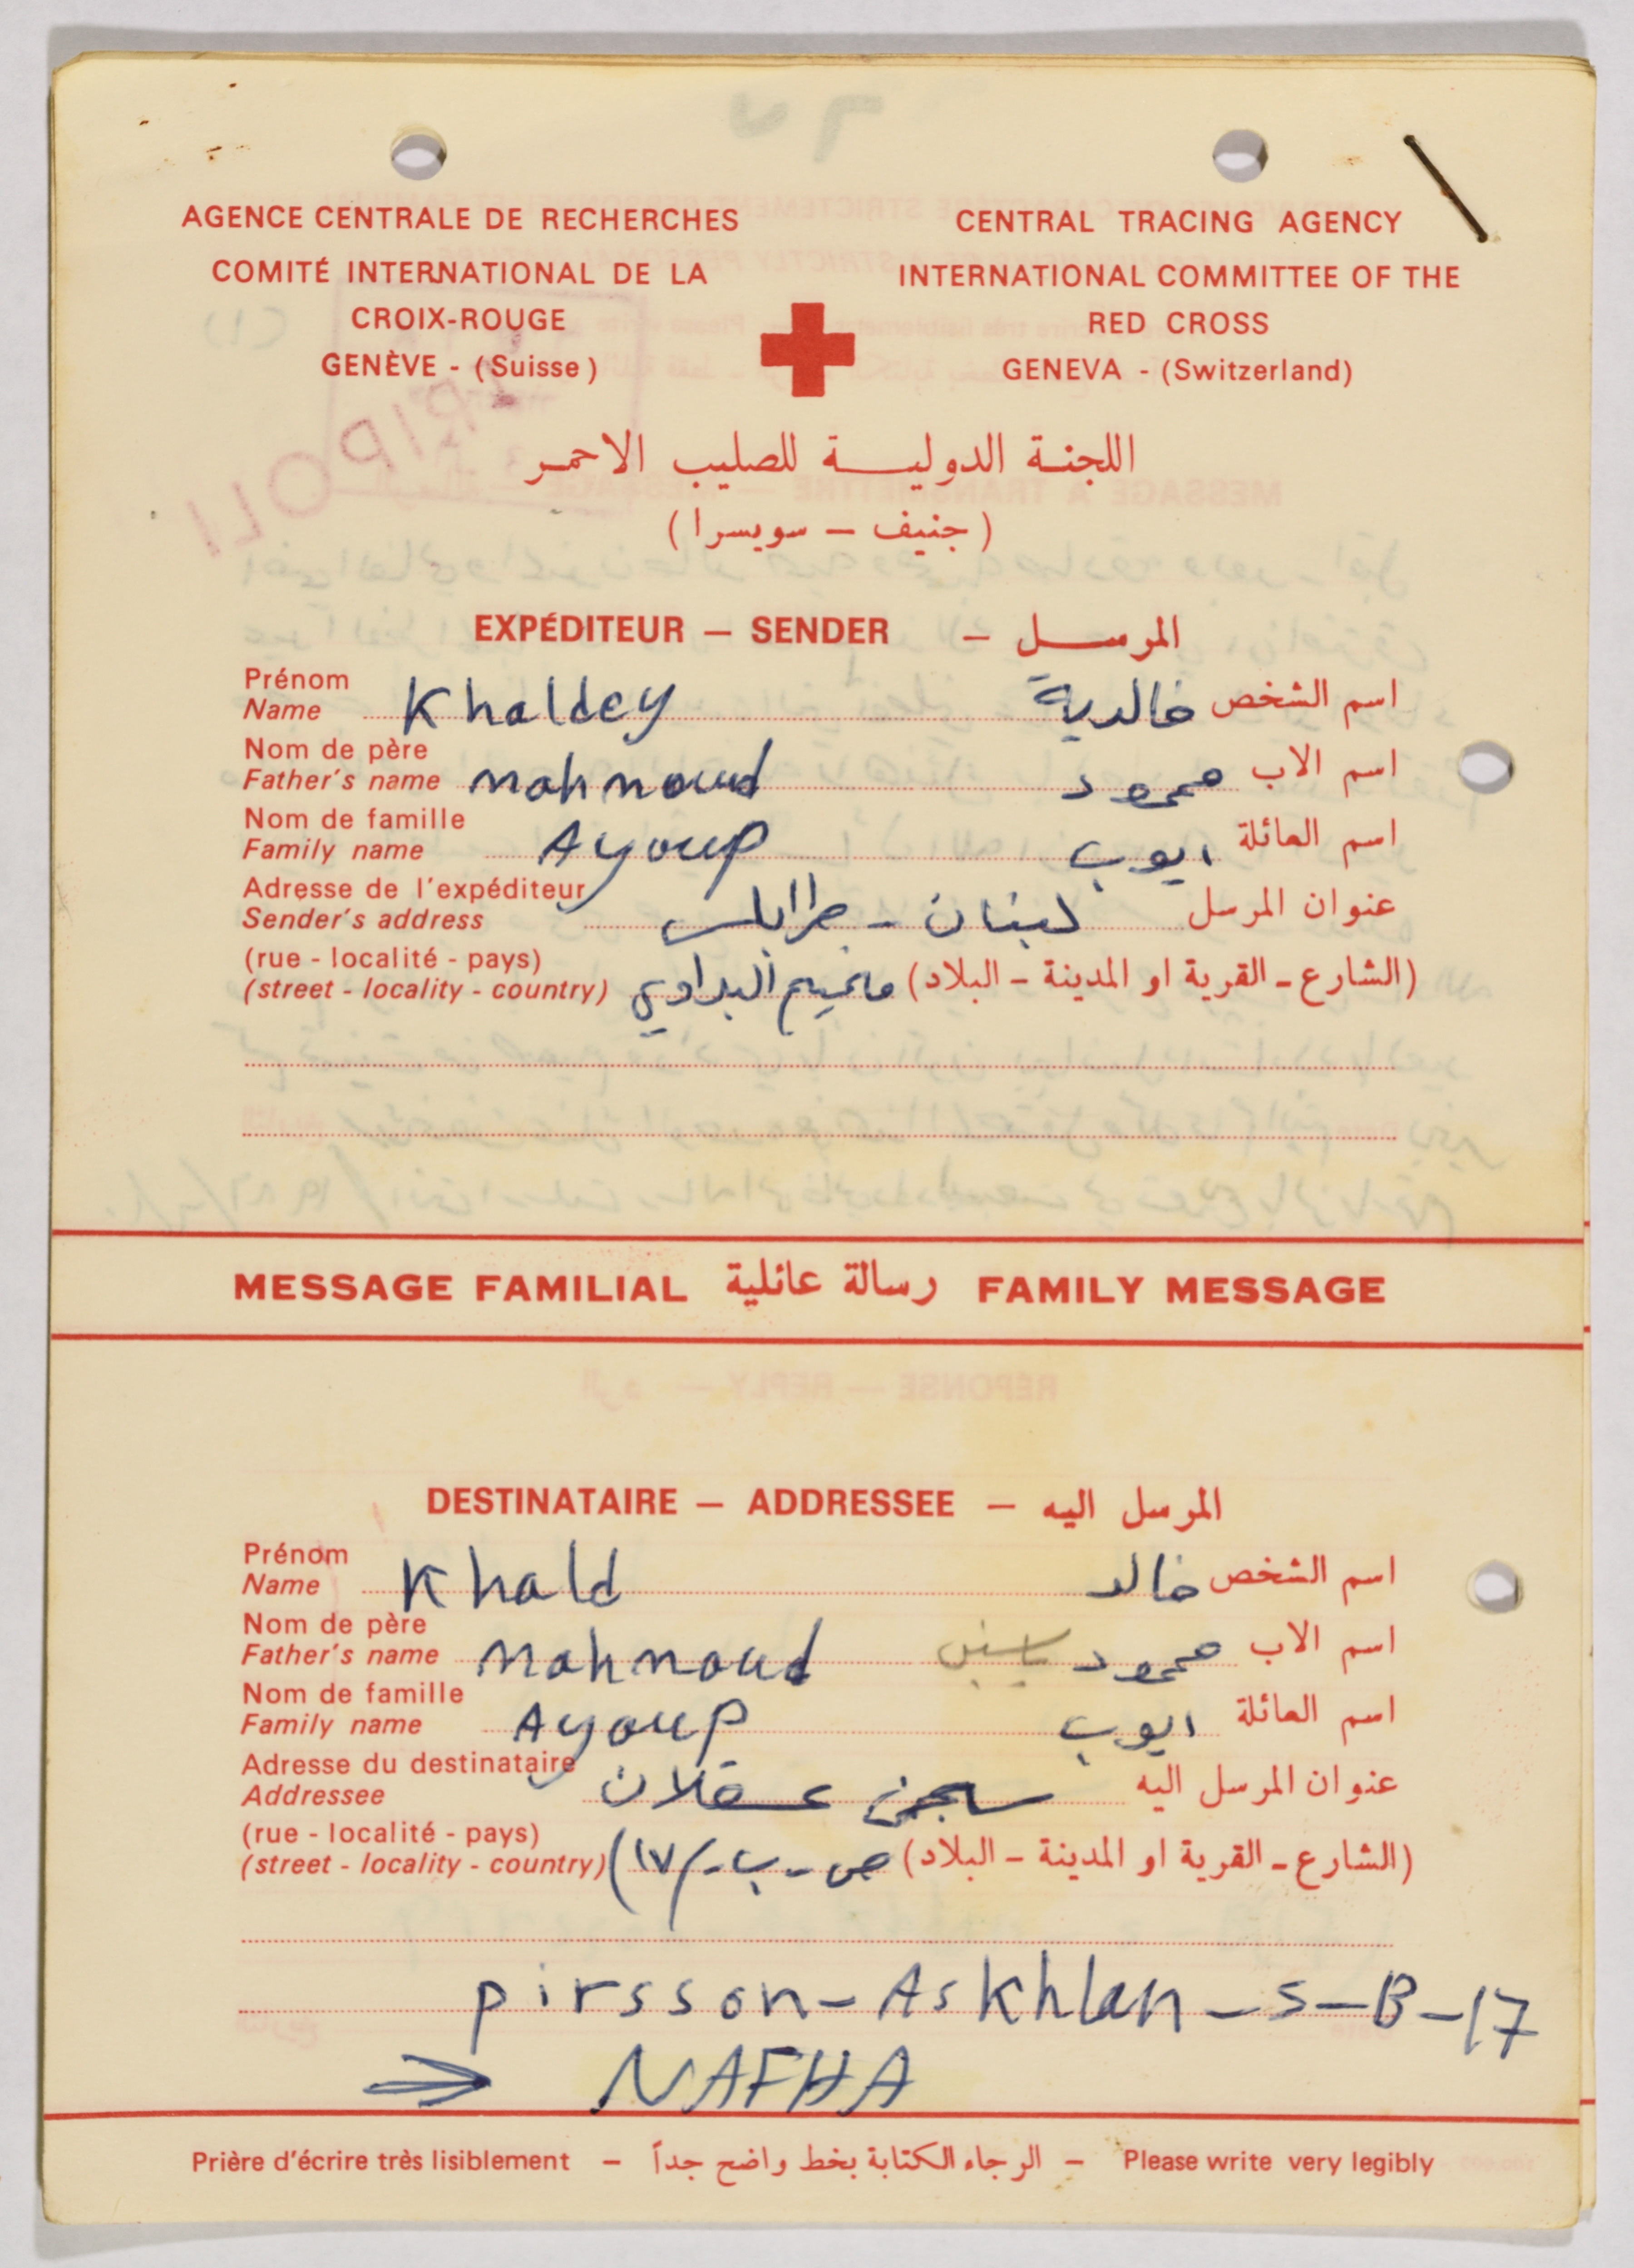 AGENCE CENTRALE DE RECHERCHES
COMITÉ INTERNATIONAL DE LA
CROIX-ROUGE
GENÈVE - (Suisse)
CENTRAL TRACING AGENCY
INTERNATIONAL COMMITTEE OF THE
RED CROSS
GENEVA - (Switzerland)
اللجنة الدولية للصليب الاحمر
(جنيف – سويسرا)
EXPÉDITEUR — SENDER — المرسل
Prénom
Name Khaldey خالدية اسم الشخص
Nom de père
Father's name mahmoud محمود اسم الاب
Nom de famille
Family name Ayoup ايوب اسم العائلة
Adresse de l'expéditeur
Sender's address لبنان - طرابلس عنوان المرسل
(rue - localité - pays)
(street - locality - country) مخيم البداوي (الشارع - القرية او المدينة - البلاد)
MESSAGE FAMILIAL رسالة عائلية FAMILY MESSAGE
DESTINATAIRE — ADDRESSEE — المرسل اليه
Prénom
Name Khald خالد اسم الشخص
Nom de père
Father's name mahmoud محمود ياسين اسم الاب
Nom de famille
Family name Ayoup ايوب اسم العائلة
Adresse du destinataire
Addressee سجن عسقلان عنوان المرسل اليه
(rue - localité - pays)
(street - locality - country) ص - ب - /١٧) (الشارع - القرية او المدينة - البلاد)
pirsson - Askhlan - s - B - 17
→ NAFHA
Prière d'écrire très lisiblement – الرجاء الكتابة بخط واضح جداً – Please write very legibly